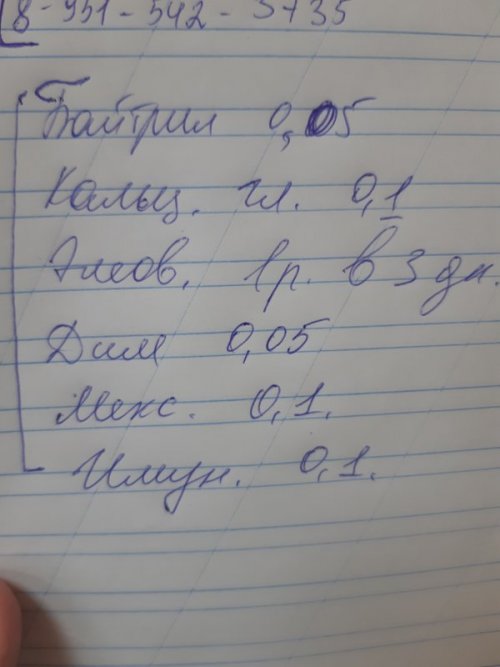 8-951-542-5735
Байтрил 0,05
Кальц. гл. 0,1
Элеов. 1р. в 3 дн.
Дим 0,05
Мекс. 0,1.
Имун. 0,1.